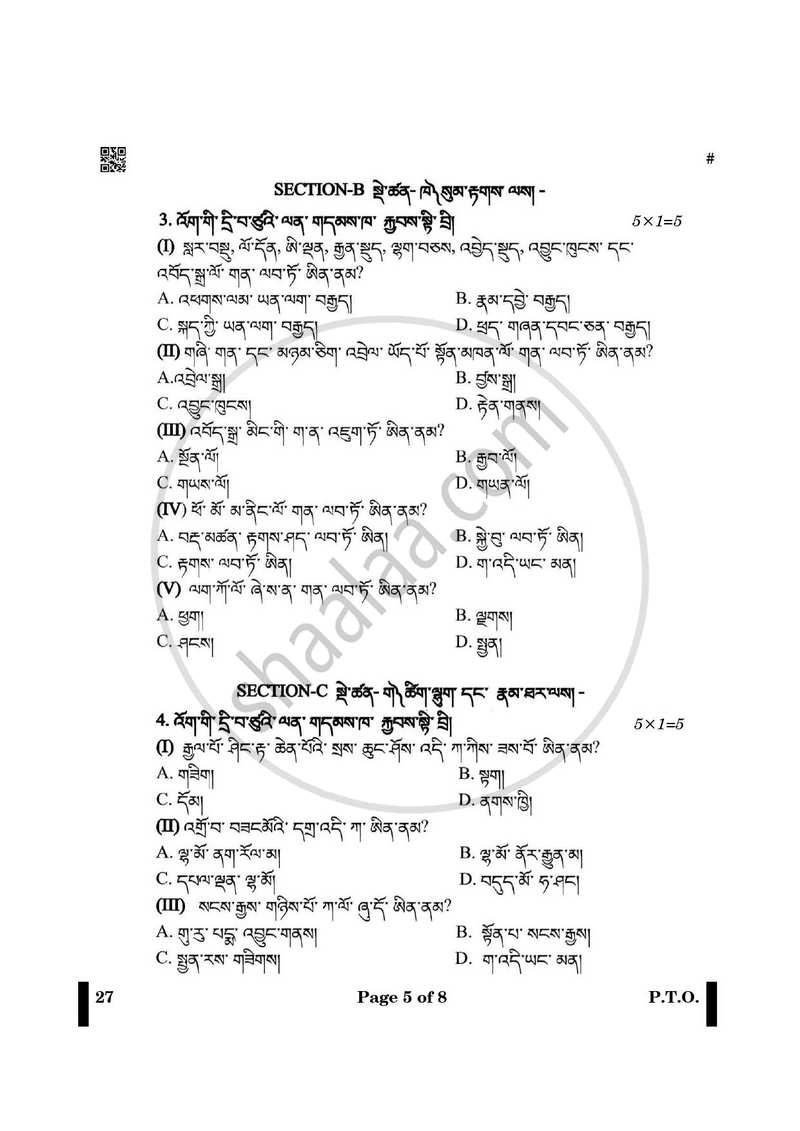 #
SECTION-B སྡེ་ཚན- ཁ༽ སུམ་རྟགས་ ལས། -
3. འོག་གི་ དྲི་བ་ཙུའི་ ལན་ གདམས་ཁ་ རྐྱབས་སྟི་ བྲི། 5×1=5
(I) སླར་བསྡུ, ལོ་དོན, ཨི་ལྡན, རྒྱན་སྡུད, ལྷག་བཅས, འབྱེད་སྡུད, འབྱུང་ཁུངས་ དང་
འབོད་སྒྲ་ལོ་ གན་ ལབ་ཏོ་ ཨིན་ནམ?
A. འཕགས་ལམ་ ཡན་ལག་ བརྒྱད། B. རྣམ་དབྱེ་ བརྒྱད།
C. སྐད་ཀྱི་ ཡན་ལག་ བརྒྱད། D. ཕྲད་ གཞན་དབང་ཅན་ བརྒྱད།
(II) གཞི་ གན་ དང་ མཉམ་ཅིག་ འབྲེལ་ ཡོད་པོ་ སྟོན་མཁན་ལོ་ གན་ ལབ་ཏོ་ ཨིན་ནམ?
A.འབྲེལ་སྒྲ། B. བྱས་སྒྲ།
C. འབྱུང་ཁུངས། D. རྟེན་གནས།
(III) འབོད་སྒྲ་ མིང་གི་ ག་ན་ འཇུག་ཏོ་ ཨིན་ནམ?
A. སྔོན་ལོ། B. རྒྱབ་ལོ།
C. གཡས་ལོ། D. གཡན་ལོ།
(IV) ཕོ་ མོ་ མ་ནིང་ལོ་ གན་ ལབ་ཏོ་ ཨིན་ནམ?
A. བརྡ་མཚན་ རྟགས་ཤད་ ལབ་ཏོ་ ཨིན། B. སྐྱེ་བུ་ ལབ་ཏོ་ ཨིན།
C. རྟགས་ ལབ་ཏོ་ ཨིན། D. ག་འདི་ཡང་ མན།
(V) ལག་ཀོ་ལོ་ ཞེ་ས་ན་ གན་ ལབ་ཏོ་ ཨིན་ནམ?
A. ཕྱག། B. ལྗགས།
C. ཤངས། D. སྤྱན།
SECTION-C སྡེ་ཚན- ག༽ ཚིག་ལྷུག་ དང་ རྣམ་ཐར་ལས། -
4. འོག་གི་ དྲི་བ་ཙུའི་ ལན་ གདམས་ཁ་ རྐྱབས་སྟི་ བྲི། 5×1=5
(I) རྒྱལ་པོ་ ཤིང་རྟ་ ཆེན་པོའི་ སྲས་ ཆུང་ཤོས་ འདི་ ཀ་གིས་ ཟས་བོ་ ཨིན་ནམ?
A. གཟིག། B. སྟག།
C. དོམ། D. ནགས་ཁྱི།
(II) འགྲོ་བ་ བཟངམོའི་ དགྲ་འདི་ ཀ་ ཨིན་ནམ?
A. ལྷ་མོ་ ནག་རོལ་མ། B. ལྷ་མོ་ ནོར་རྒྱུན་མ།
C. དཔལ་ལྡན་ ལྷ་མོ། D. བདུད་མོ་ ཧ་ཤང།
(III) སངས་རྒྱས་ གཉིས་པོ་ ཀ་ལོ་ ཞུ་དོ་ ཨིན་ནམ?
A. གུ་རུ་ པདྨ་ འབྱུང་གནས། B. སྟོན་པ་ སངས་རྒྱས།
C. སྤྱན་རས་ གཟིགས། D. ག་འདི་ཡང་ མན།
shaalaa.com
27 Page 5 of 8 P.T.O.